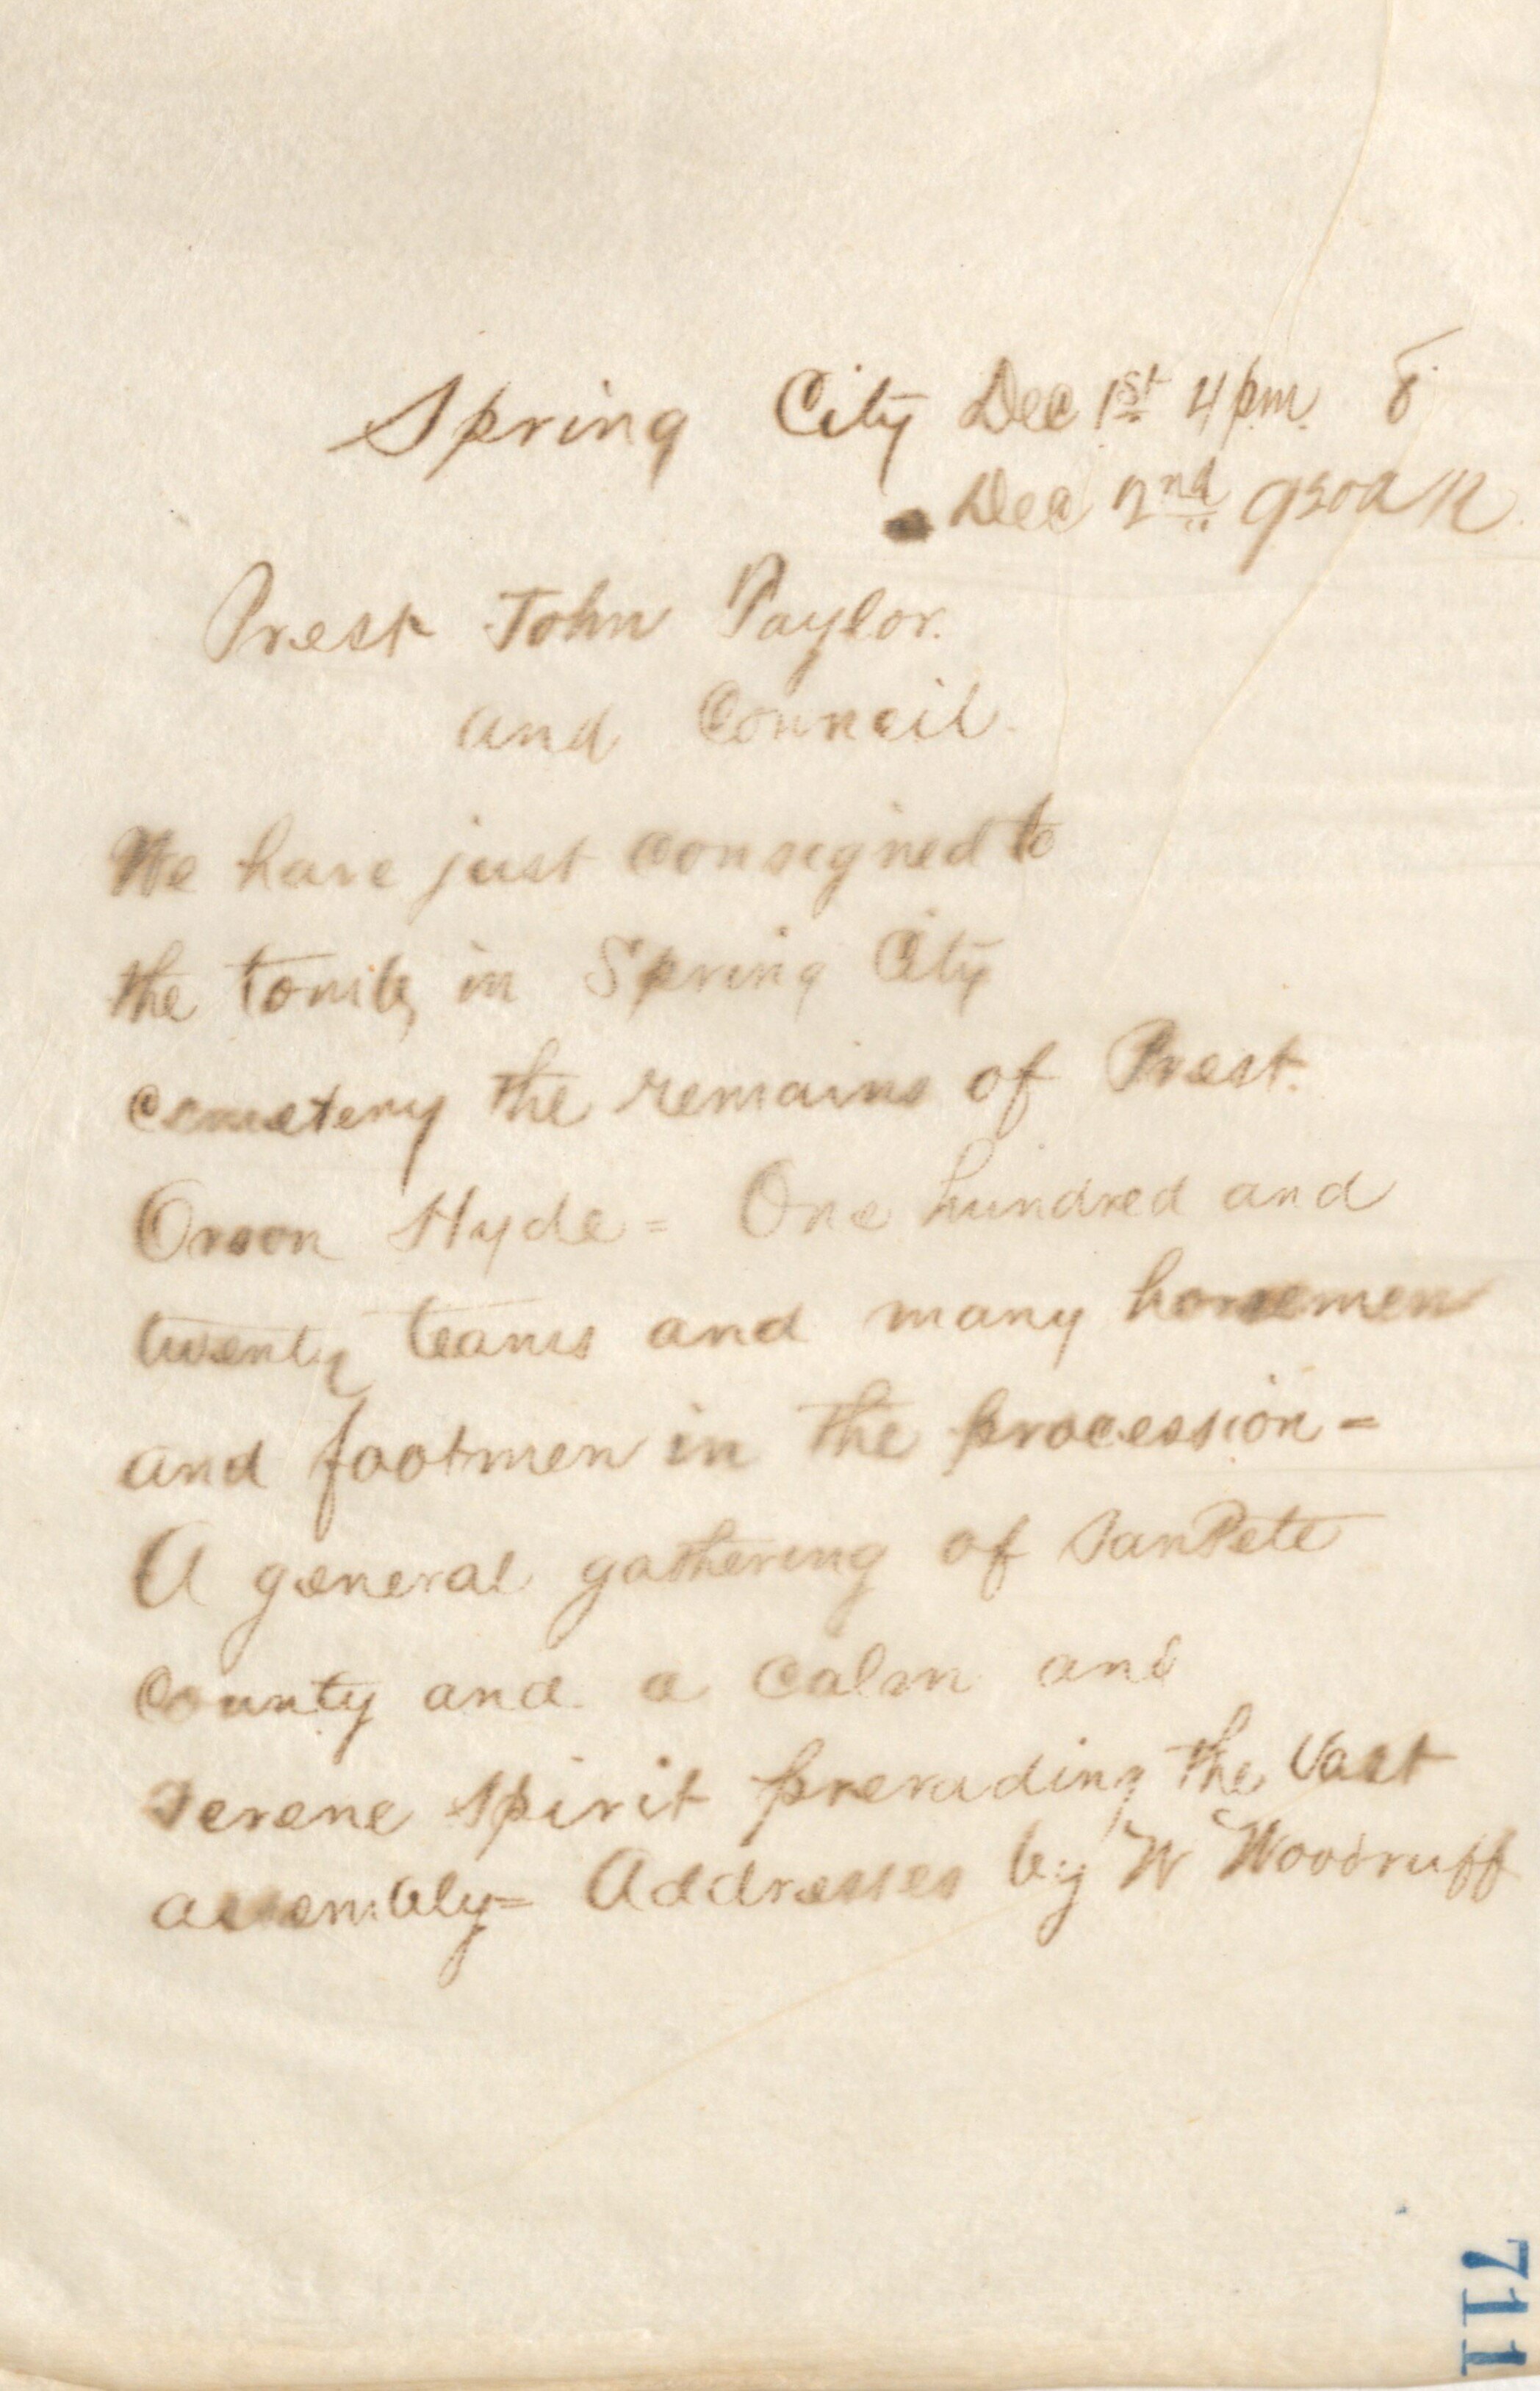 Spring City Dec 1st 4 pm. 8
Dec 2nd 930 a m
Prest John Taylor.
and Council.
We have just consigned to
the tomb, in Spring City
cemetery the remains of Prest.
Orson Hyde = One hundred and
twenty teams and many horsemen
and footmen in the procession =
A general gathering of SanPete
County and a calm and
serene spirit prevading the vast
assembly = Addresses by W Woodruff
711